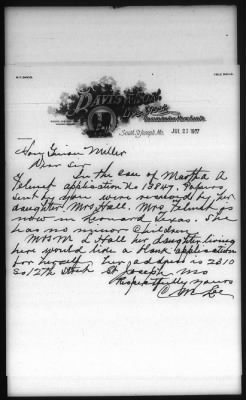 DAVIS & SON
Live Stock
Commission Merchants
South St. Joseph, Mo. JUL 21 1907
Miller
Dear Sir
In the case of Martha A
application No 13847. Papers
sent by you were received by her
daughter Mrs Hall. Mrs is
now in Leonard Texas. She
has no minor children
Mrs M L Hall her daughter living
here would like a blank application
for herself her address is 2310
So 12th Street St Joseph Mo
Respectfully yours
C M